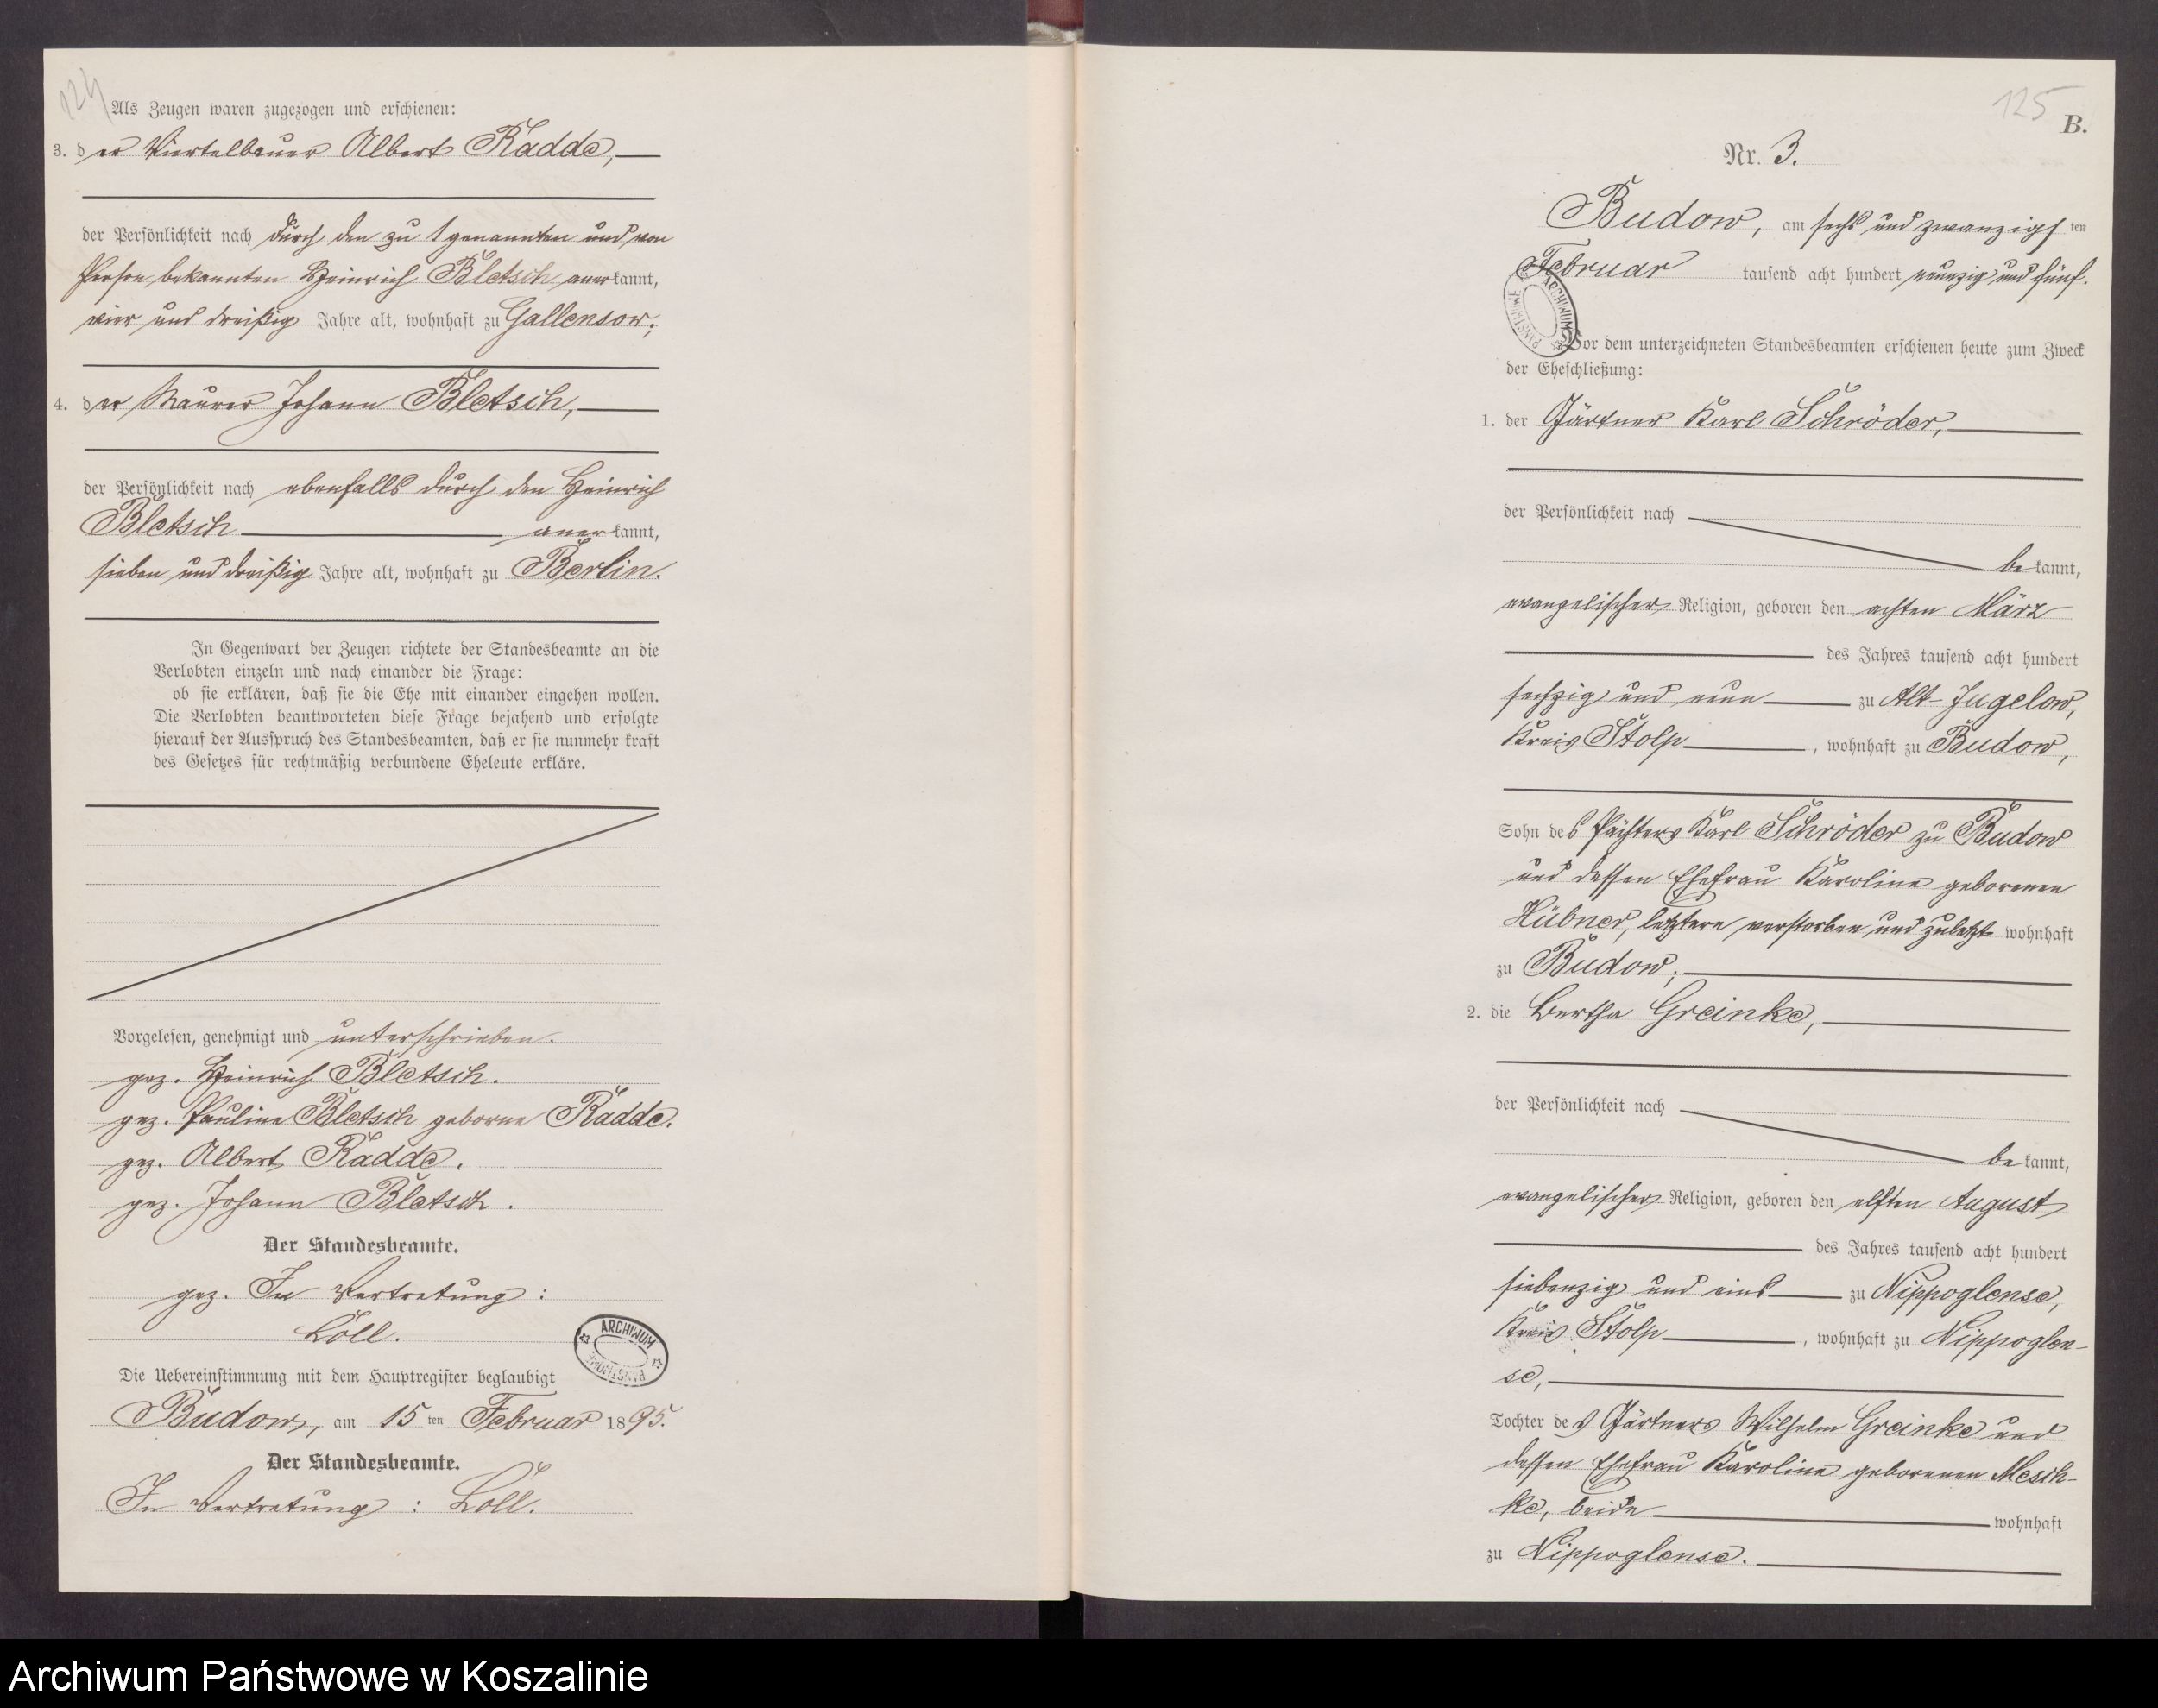 124
Als Zeugen waren zugezogen und erschienen:
3. der Viertelbauer Albert Radde,
der Persönlichkeit nach durch den zu 1 genannten und von
Person bekannten Heinrich Bletsch anerkannt,
vier und dreißig Jahre alt, wohnhaft zu Gallensow;
4. der Maurer Johann Bletsch,
der Persönlichkeit nach ebenfalls durch den Heinrich
Bletsch anerkannt,
sieben und dreißig Jahre alt, wohnhaft zu Berlin.
In Gegenwart der Zeugen richtete der Standesbeamte an die
Verlobten einzeln und nach einander die Frage:
ob sie erklären, daß sie die Ehe mit einander eingehen wollen.
Die Verlobten beantworteten diese Frage bejahend und erfolgte
hierauf der Ausspruch des Standesbeamten, daß er sie nunmehr kraft
des Gesetzes für rechtmäßig verbundene Eheleute erkläre.
Vorgelesen, genehmigt und unterschrieben.
gez. Heinrich Bletsch.
gez. Pauline Bletsch geborne Radde.
gez. Albert Radde.
gez. Johann Bletsch.
Der Standesbeamte.
gez. In Vertretung:
Löll.
ARCHIWUM PAŃSTWOWE
Die Uebereinstimmung mit dem Hauptregister beglaubigt
Budow, am 15ten Februar 1895.
Der Standesbeamte.
In Vertretung: Löll.
125
B.
Nr. 3.
Budow, am sechs und zwanzigsten
Februar tausend acht hundert neunzig und fünf.
ARCHIWUM PAŃSTWOWE
Vor dem unterzeichneten Standesbeamten erschienen heute zum Zweck
der Eheschließung:
1. der Gärtner Karl Schröder,
der Persönlichkeit nach
bekannt,
evangelischer Religion, geboren den achten März
des Jahres tausend acht hundert
sechzig und neun zu Alt-Jugelow,
Kreis Stolp, wohnhaft zu Budow,
Sohn des Pächters Karl Schröder zu Budow
und dessen Ehefrau Karoline geborenen
Hübner, letztere verstorben und zuletzt wohnhaft
zu Budow;
2. die Bertha Greinke,
der Persönlichkeit nach
bekannt,
evangelischer Religion, geboren den elften August
des Jahres tausend acht hundert
siebenzig und eins zu Nippoglense,
Kreis Stolp, wohnhaft zu Nippoglen-
se,
Tochter des Gärtners Wilhelm Greinke und
dessen Ehefrau Karoline geborenen Mesch-
ke, beide wohnhaft
zu Nippoglense.
Archiwum Państwowe w Koszalinie